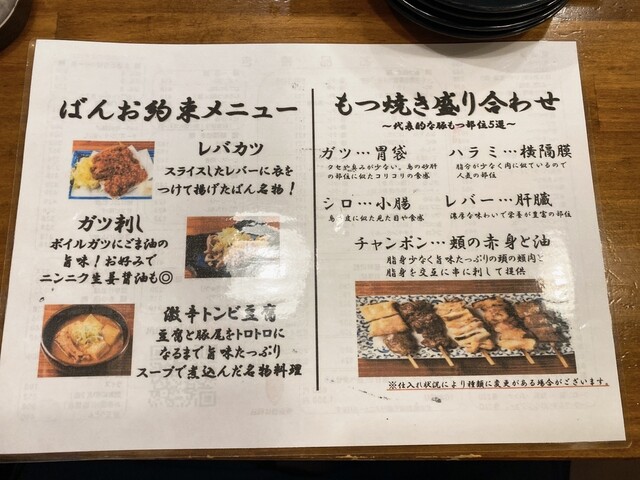 ばんお約束メニュー
レバカツ
スライスしたレバーに衣を
つけて揚げたばん名物！
ガツ刺し
ボイルガツにごま油の
旨味！お好みで
ニンニク生姜醤油も◎
激辛トンビ豆腐
豆腐と豚尾をトロトロに
なるまで旨味たっぷり
スープで煮込んだ名物料理
もつ焼き盛り合わせ
～代表的な豚もつ部位5選～
ガツ…胃袋
クセや臭みが少ない。鳥の砂肝
の部位に似たコリコリの食感
ハラミ…横隔膜
脂分が少なく肉に似ているので
人気の部位
シロ…小腸
鳥皮に似た見た目や食感
レバー…肝臓
濃厚な味わいで栄養が豊富の部位
チャンポン…頬の赤身と油
脂身少なく旨味たっぷりの頬の頬肉と
脂身を交互に串に刺して提供
※仕入れ状況により種類に変更がある場合がございます。